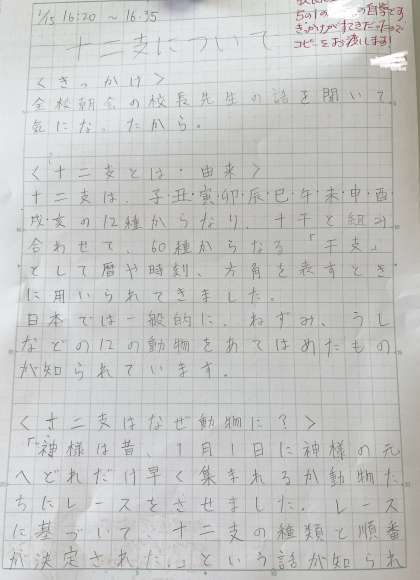 1/15 16:20 ～ 16:35
5の1の の自学です
きっかけがすてきだったので
コピーをお渡しします!
十二支について
<きっかけ>
全校朝会の校長先生の話を聞いて
気になったから。
<十二支とは・由来>
十二支は、子・丑・寅・卯・辰・巳・午・未・申・酉・
戌・亥の12種からなり、十干と組み
合わせて、60種からなる「干支」
として暦や時刻、方角を表すとき
に用いられてきました。
日本では一般的に、ねずみ、うし
などの12の動物をあてはめたもの
が知られています。
<十二支はなぜ動物に?>
「神様は昔、1月1日に神様の元
へどれだけ早く集まれるか動物た
ちにレースをさせました。レース
に基づいて、十二支の種類と順番
が決定された。」という話が知られ